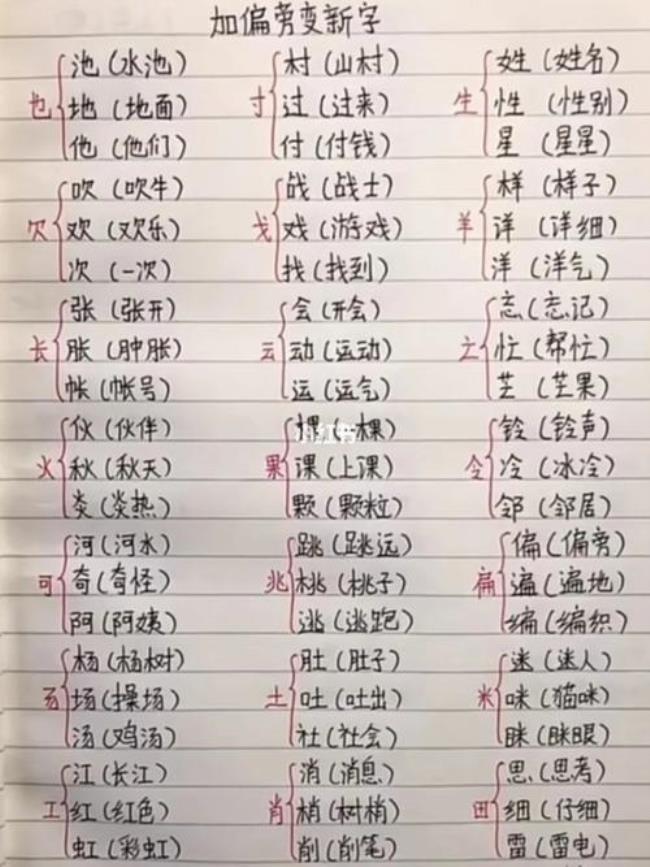 加偏旁变新字
池（水池） 村（山村） 姓（姓名）
也 地（地面） 寸 过（过来） 生 性（性别）
他（他们） 付（付钱） 星（星星）
吹（吹牛） 战（战士） 样（样子）
欠 欢（欢乐） 戈 戏（游戏） 羊 详（详细）
次（一次） 找（找到） 洋（洋气）
张（张开） 会（开会） 忘（忘记）
长 胀（肿胀） 云 动（运动） 亡 忙（帮忙）
帐（帐号） 运（运气） 芒（芒果）
伙（伙伴） 棵（一棵） 铃（铃声）
小红书
火 秋（秋天） 果 课（上课） 令 冷（冰冷）
炎（炎热） 颗（颗粒） 邻（邻居）
河（河水） 跳（跳远） 偏（偏旁）
可 奇（奇怪） 兆 桃（桃子） 扁 遍（遍地）
阿（阿姨） 逃（逃跑） 编（编织）
杨（杨树） 肚（肚子） 迷（迷人）
𠃓 场（操场） 土 吐（吐出） 米 咪（猫咪）
汤（鸡汤） 社（社会） 眯（眯眼）
江（长江） 消（消息） 思（思考）
工 红（红色） 肖 梢（树梢） 田 细（仔细）
虹（彩虹） 削（削笔） 雷（雷电）